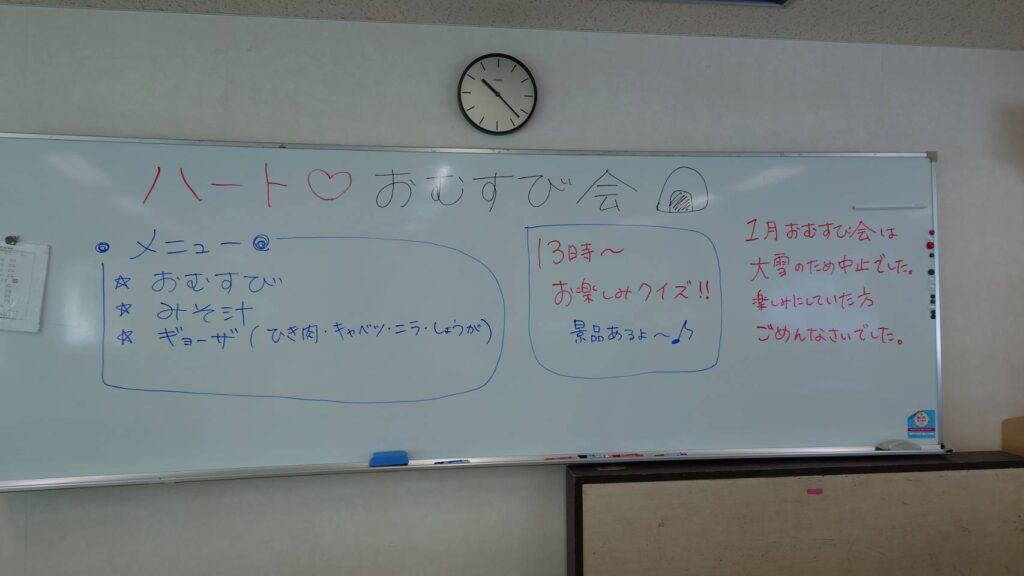 ハート♡おむすび会
◎ メニュー ◎
☆ おむすび
☆ みそ汁
☆ ギョーザ(ひき肉・キャベツ・ニラ・しょうが)
13時~
お楽しみクイズ!!
景品あるよ~♪
1月おむすび会は
大雪のため中止でした。
楽しみにしていた方
ごめんなさいでした。